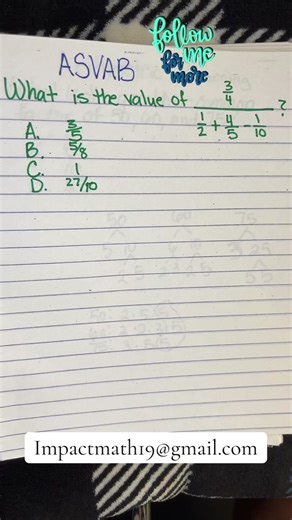 follow
me
for
more
ASVAB
What is the value of 3/4 / (1/2 + 4/5 - 1/10) ?
A. 3/5
B. 5/8
C. 1
D. 27/10
Impactmath19@gmail.com